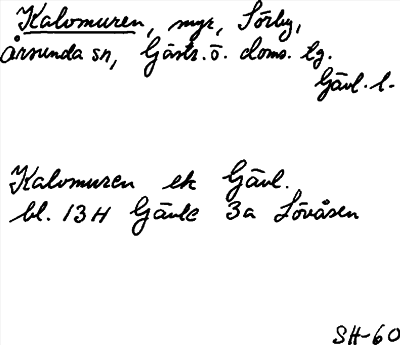 Kalomuren, myr, Sörby,
Årsunda sn, Gästr. ö. doms. lg.
Gävl. l.
Kalomuren ek Gävl.
bl. 13H Gävle 3a Lövåsen
SH-60